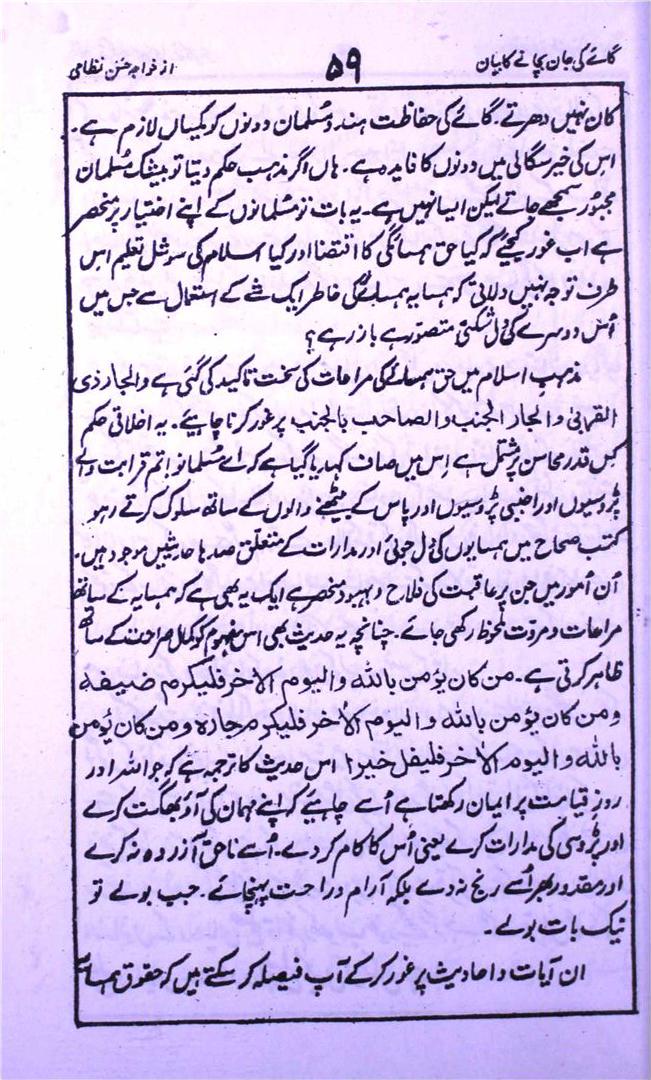 گائے کی جان بچانے کا بیان ۵۹ از خواجہ حسن نظامی
کان نہیں دھرتے۔ گائے کی حفاظت ہندو مسلمان دونوں کو یکساں لازم ہے۔
اس کی خیر سگالی میں دونوں کا فایدہ ہے۔ ہاں اگر مذہب حکم دیتا تو بیشک مسلمان
مجبور سمجھے جاتے لیکن ایسا نہیں ہے۔ یہ بات تو مسلمانوں کے اپنے اختیار پر منحصر
ہے اب غور کیجئے کہ کیا حق ہمسائگی کا اقتضا اور کیا اسلام کی سوشل تعلیم اس
طرف توجہ نہیں دلاتی کہ ہمسایہ ہمسائے کی خاطر ایک شے کے استعمال سے جس میں
اُس دوسرے کی دل شکنی متصور ہے باز رہے؟
مذہب اسلام میں حق ہمسائے کی مراعات کی سخت تاکید کی گئی ہے والجار ذی
القربیٰ والجار الجنب والصاحب بالجنب پر غور کرنا چاہیئے۔ یہ اخلاقی حکم
کس قدر محاسن پر مشتمل ہے اس میں صاف کہدیا گیا ہے کہ اے مسلمانو تم قرابت والے
پڑوسیوں اور اجنبی پڑوسیوں اور پاس کے بیٹھنے والوں کے ساتھ سلوک کرتے رہو
کتب صحاح میں ہمسایوں کی دل جوئی اور مدارات کے متعلق صدہا حدیثیں موجود ہیں۔
اُن اُمور میں جن پر عاقبت کی فلاح و بہبود منحصر ہے ایک یہ بھی ہے کہ ہمسایہ کے ساتھ
مراعات و مروت ملحوظ رکھی جائے۔ چنانچہ یہ حدیث بھی اس مفہوم کو کمال صراحت کے ساتھ
ظاہر کرتی ہے۔ من کان یؤمن باللہ والیوم الاٰخر فلیکرم ضیفہ
ومن کان یؤمن باللہ والیوم الاٰخر فلیکرم جارہ ومن کان یؤمن
باللہ والیوم الاٰخر فلیقل خیرا اس حدیث کا ترجمہ ہے کہ جو اللہ اور
روز قیامت پر ایمان رکھتا ہے اُسے چاہیئے کہ اپنے مہمان کی آؤ بھگت کرے
اور پڑوسی کی مدارات کرے یعنی اُس کا کام کر دے۔ اُسے ناحق آزردہ نہ کرے
اور مقدور بھر اُسے رنج نہ دے بلکہ آرام و راحت پہنچائے۔ جب بولے تو
نیک بات بولے۔
ان آیات و احادیث پر غور کر کے آپ فیصلہ کر سکتے ہیں کہ حقوق ہمسائے